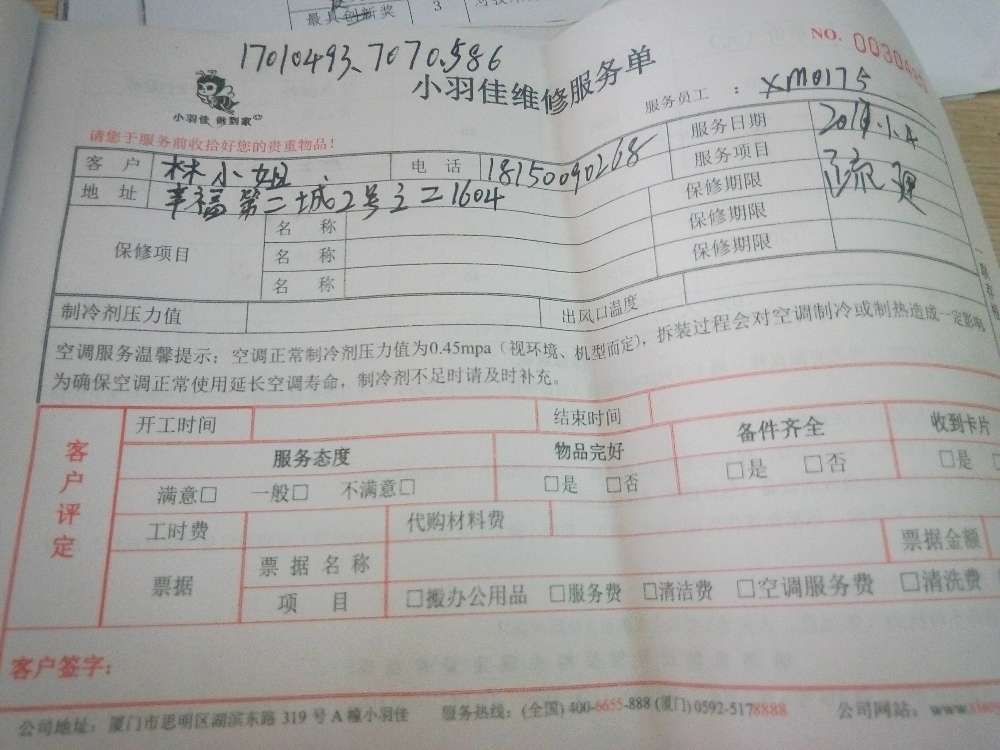 最具创新奖 3
NO. 00304
17010493、7070.586
小羽佳维修服务单
小羽佳 做到家
服务员工 : XM0175
请您于服务前收拾好您的贵重物品!
客 户 林小姐 电 话 18150090268 服务日期
地 址 幸福第二城2号之二1604 服务项目 疏理
保修项目 名 称 保修期限
名 称 保修期限
名 称 保修期限
制冷剂压力值 出风口温度
空调服务温馨提示:空调正常制冷剂压力值为0.45mpa(视环境、机型而定),拆装过程会对空调制冷或制热造成一定影响
为确保空调正常使用延长空调寿命,制冷剂不足时请及时补充。
客户评定
开工时间 结束时间
服务态度 物品完好 备件齐全 收到卡片
满意□ 一般□ 不满意□ □是 □否 □是 □否 □是
工时费 代购材料费
票据 票 据 名 称 票据金额
项 目 □搬办公用品 □服务费 □清洁费 □空调服务费 □清洗费
客户签字:
公司地址:厦门市思明区湖滨东路 319 号 A 幢小羽佳 服务热线:(全国) 400-6655-888 (厦门) 0592-5178888 公司网站:www.